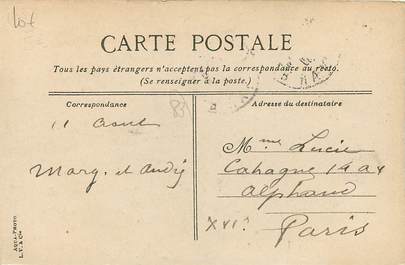 lot
CARTE POSTALE
Tous les pays étrangers n'acceptent pas la correspondance au recto.
(Se renseigner à la poste.)
Correspondance
Adresse du destinataire
11 Aout
Marg. et André
Mme Lucie
Cahagne 14 Av
Alphand
XVIe
Paris
AQUA-PHOTO
L.V. & Cie